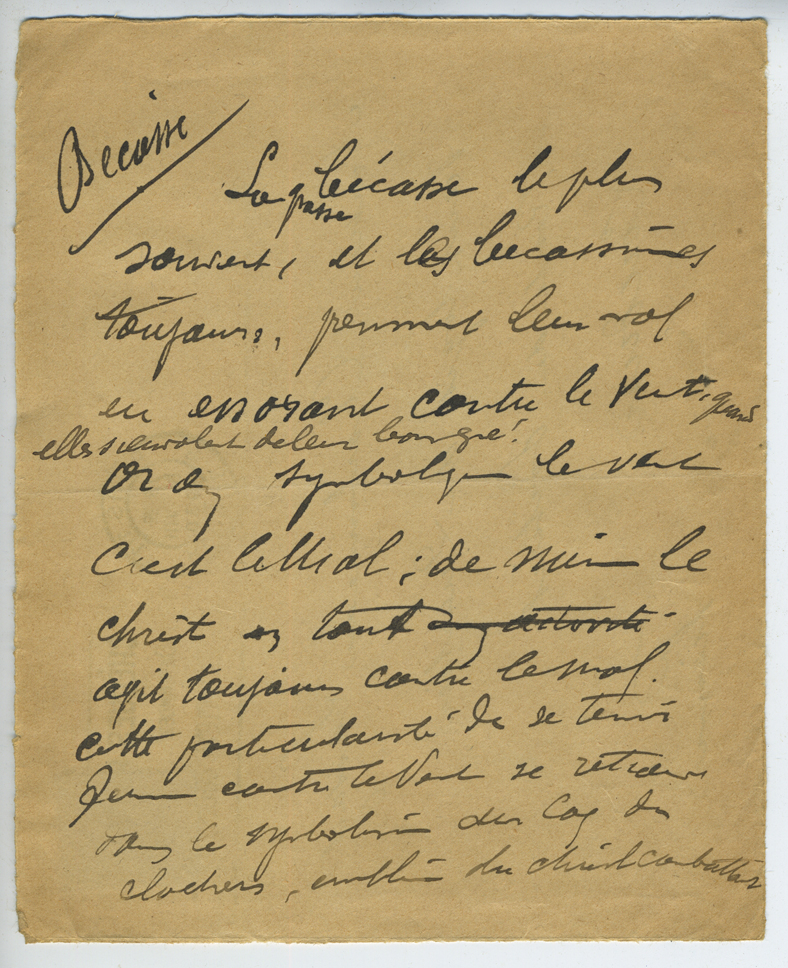 Becasse
La bécasse le plus
passe
souvent, et les becassines
toujours, prennent leur vol
en essorant contre le Vent, quand
elles s'envolent de leur bon gré !
Or en symbolique le vent
c'est le Mal ; de même le
christ en tout
agit toujours contre le mal.
cette particularité de se tenir
ferme contre le Vent se retrouve
dans le symbolisme du Coq des
clochers, emblème du christ combattant